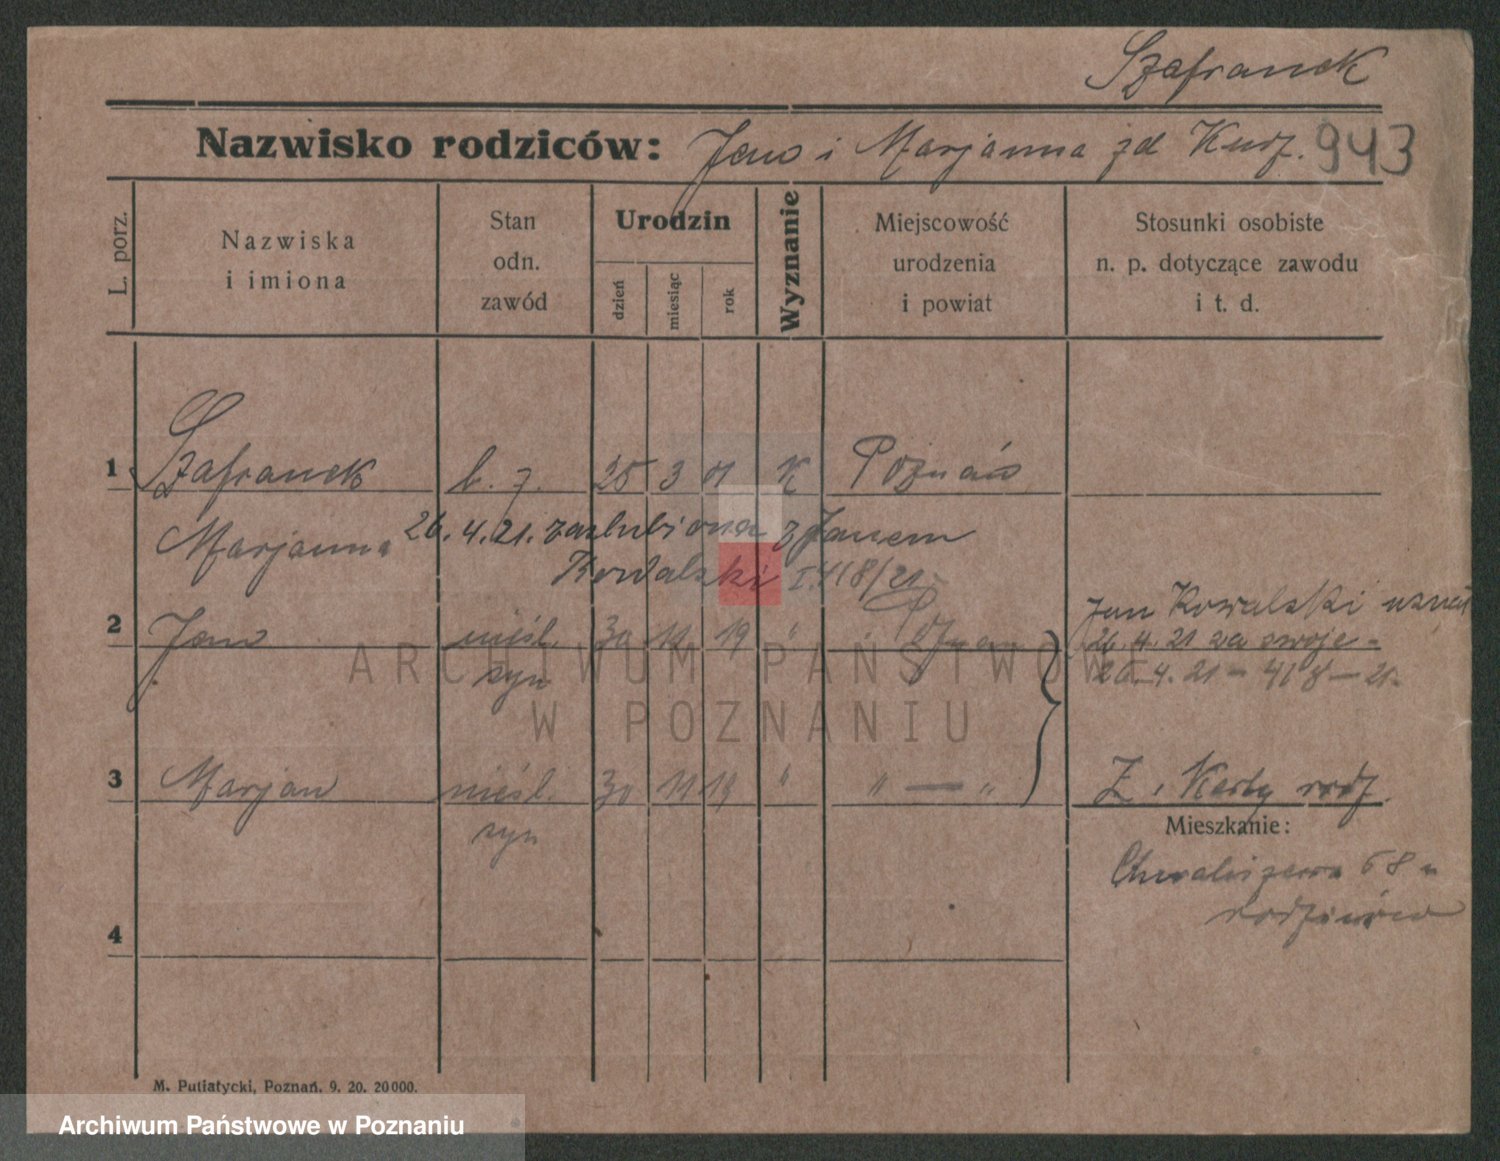 Szafranek
Nazwisko rodziców: Jan i Marjanna zd Kurz. 943
L. porz.
Nazwiska
i imiona
Stan
odn.
zawód
Urodzin
dzień
miesiąc
rok
Wyznanie
Miejscowość
urodzenia
i powiat
Stosunki osobiste
n. p. dotyczące zawodu
i t. d.
1 Szafranek b. z. 25 3 01 K Poznań
Marjanna 26.4.21. zaślubiona z Janem
Kowalski I. 418/21
2 Jan nieśl. 30 11 19 " Poznań
syn
Jan Kowalski uznał
26.4.21 za swoje -
26.4.21 - 418 - 21.
3 Marjan nieśl. 30 11 19 " " — "
syn
Z. Karty rodz.
Mieszkanie:
Chwaliszewo 68 u
rodziców
4
M. Putiatycki, Poznań. 9. 20. 20000.
ARCHIWUM PAŃSTWOWE
W POZNANIU
Archiwum Państwowe w Poznaniu